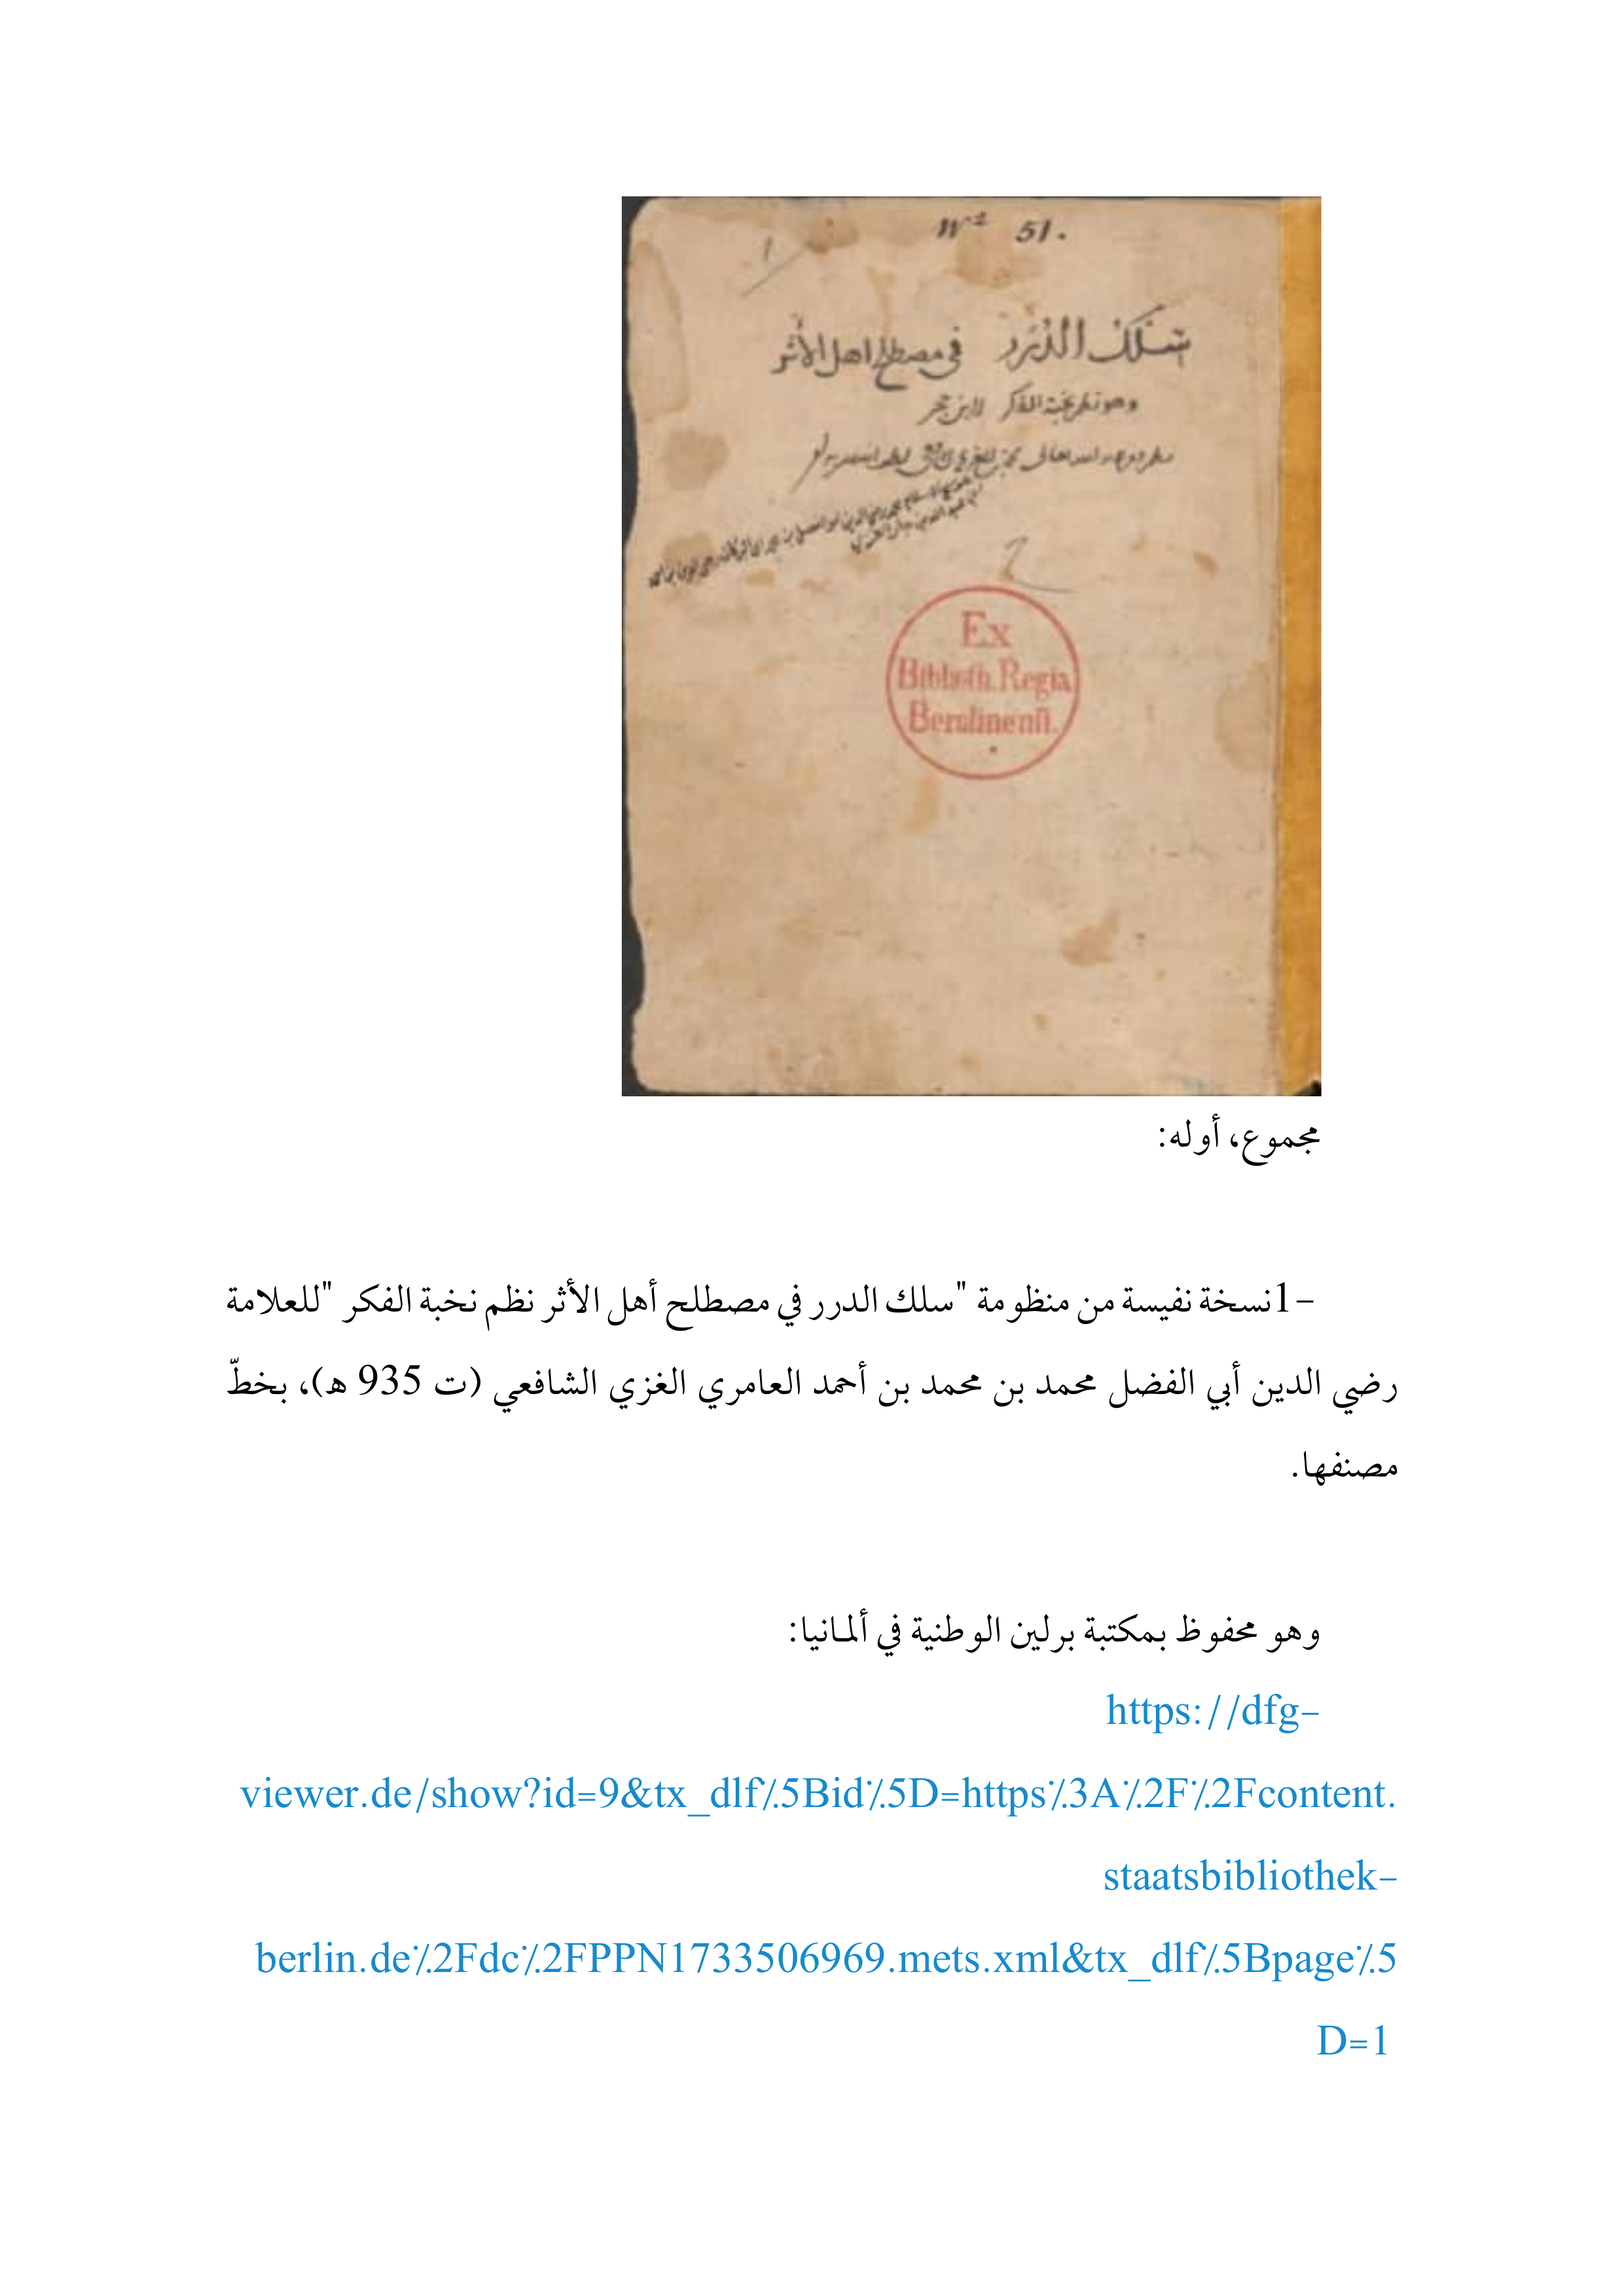 Nº 51.
سلك الدرر في مصطلح اهل الأثر
وهو نظم نخبة الفكر لابن حجر
Ex
Biblioth. Regia
Berolinensi.
مجموع، أوله:
-1نسخة نفيسة من منظومة "سلك الدرر في مصطلح أهل الأثر نظم نخبة الفكر "للعلامة
رضي الدين أبي الفضل محمد بن محمد بن أحمد العامري الغزي الشافعي (ت 935 ه)، بخطّ
مصنفها.
وهو محفوظ بمكتبة برلين الوطنية في ألمانيا:
https://dfg-
viewer.de/show?id=9&tx_dlf%5Bid%5D=https%3A%2F%2Fcontent.
staatsbibliothek-
berlin.de%2Fdc%2FPPN1733506969.mets.xml&tx_dlf%5Bpage%5
D=1